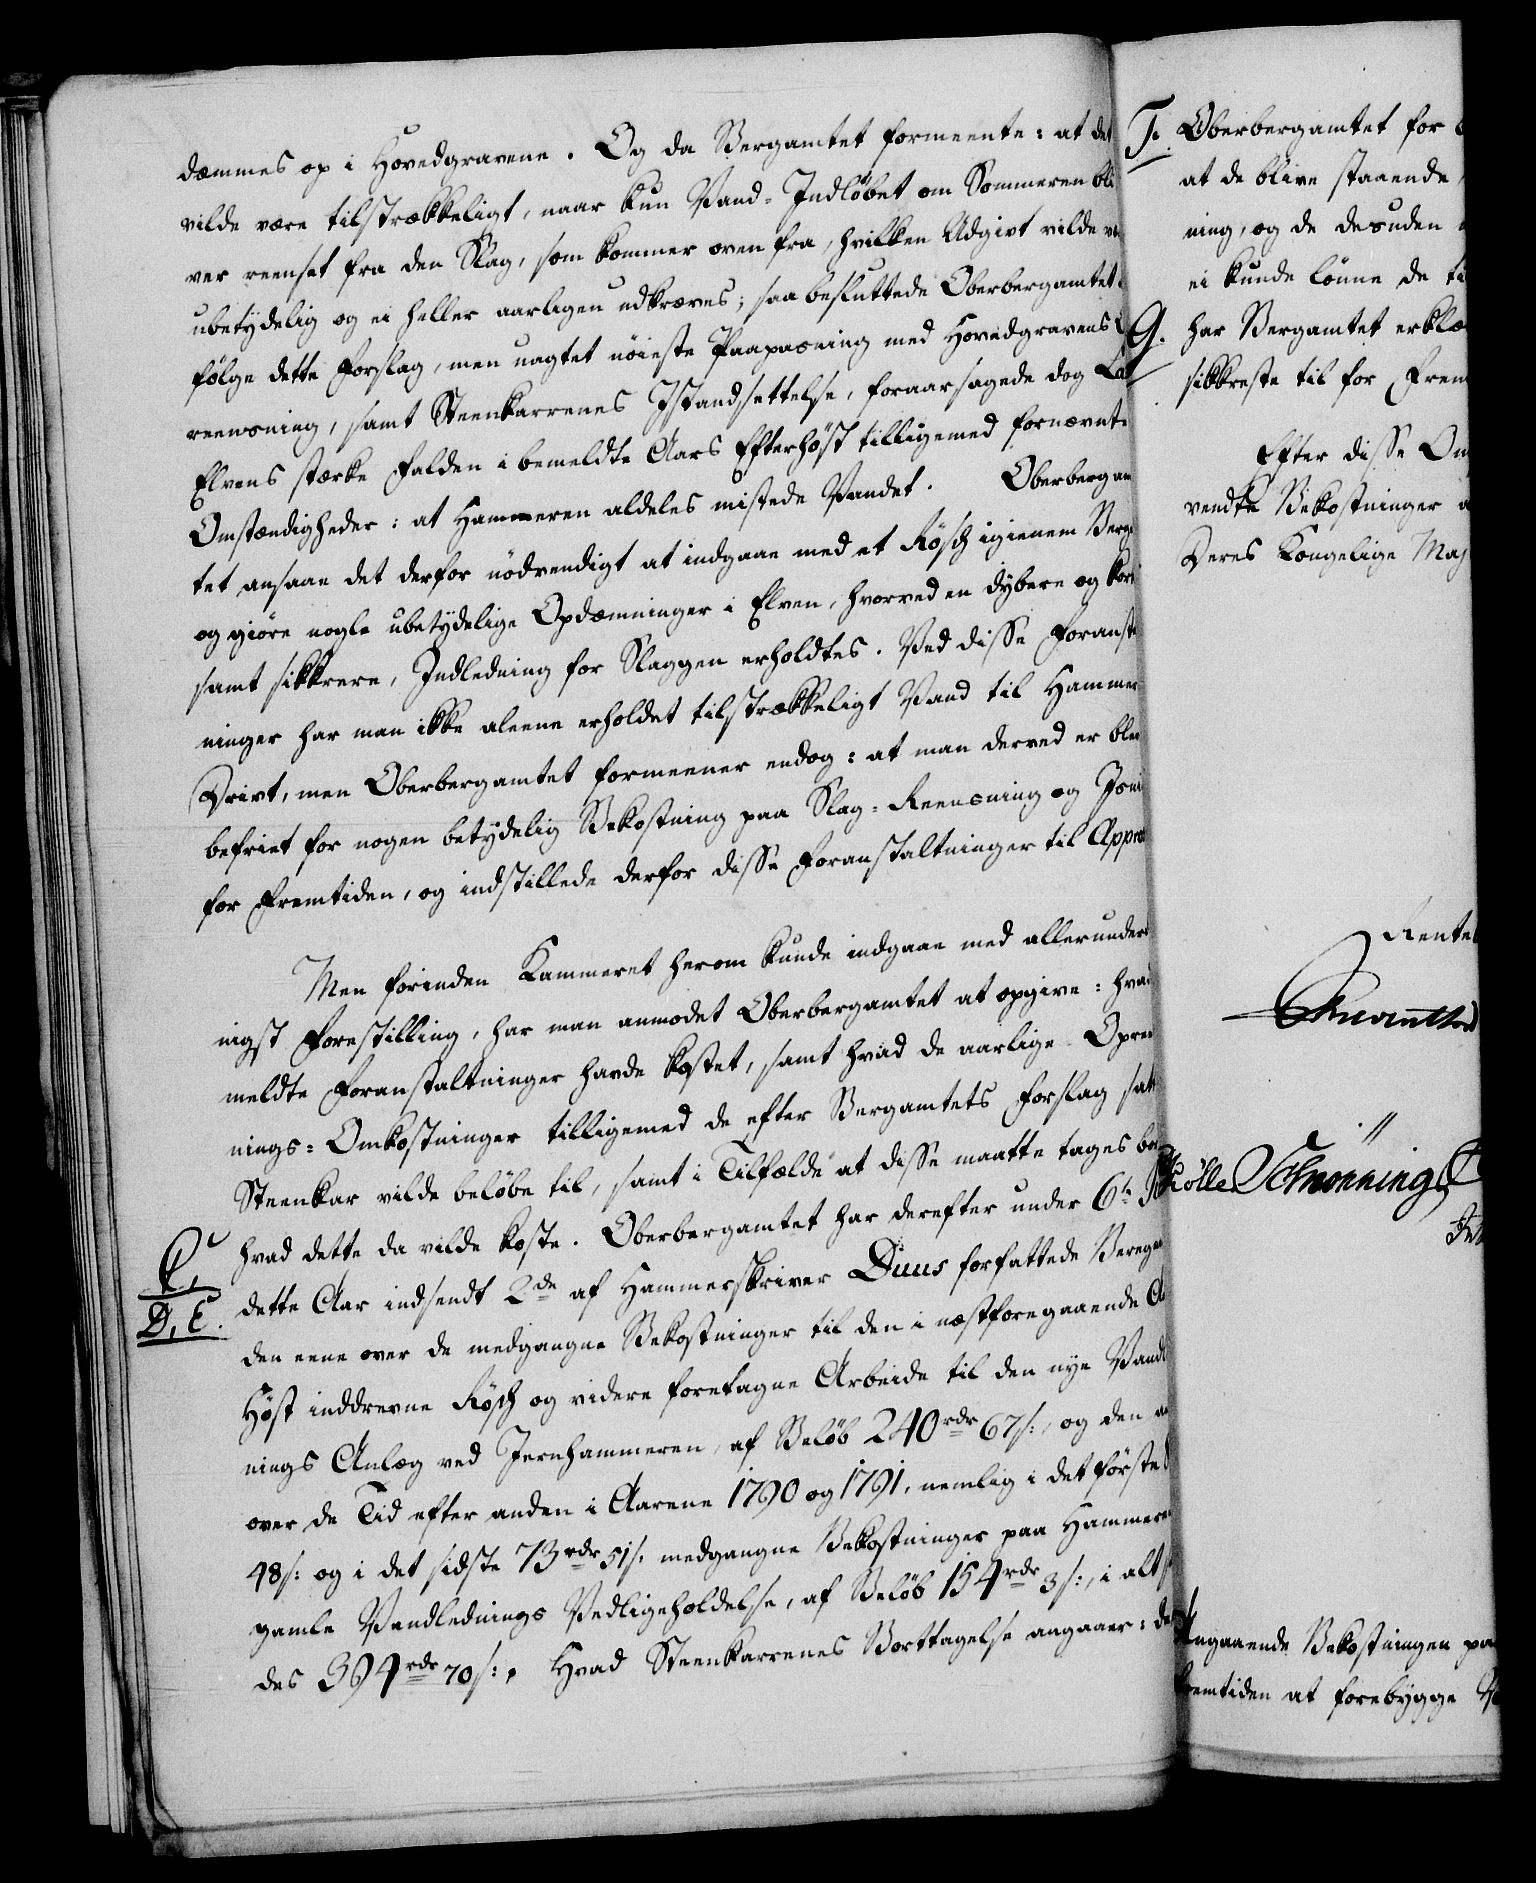 dæmmes op i Hovedgravene. Og da Bergamtet formeente: at det
vilde være tilstrækkeligt, naar kun Vand-Indløbet om Sommeren bli
ver reenset fra den Slag, som kommer oven fra, hvilken Udgivt vilde
ubetydelig og ei heller aarligen udkræves; saa besluttede Oberbergamtet
følge dette Forslag, men uagtet nöieste Paapasning med Hovedgravens
reensning, samt Steenkarrenes Istandsettelse, foraarsagede dog
Elvens stærke Falden i bemeldte Aars Efterhøst tilligemed fornævnte
Omstændigheder: at Hammeren aldeles mistede Vandet. Obergam
tet ansaae det derfor nödvendigt at indgaae med et Rösch igienem Berg
og giöre nogle ubetydelige Opdæmninger i Elven, hvorved en dybere og kort
samt sikkrere, Indledning for Slaggen erholdtes. Ved disse Foranst
ninger har man ikke aleene erholdet tilstrækkeligt Vand til Hammer
Drivt, men Oberbergamtet formeener endog: at man derved er blev
befriet for nogen betydelig Bekostning paa Slag-Reensning og
for Fremtiden, og indstillede derfor disse Foranstaltninger til Appro
Men forinden Kammeret herom kunde indgaae med allerunder
nigst Forestilling, har man anmodet Oberbergamtet at opgive: hvad
meldte Foranstaltninger havde kostet, samt hvad de aarlige Opren
nings-Omkostninger tilligemed de efter Bergamtets Forslag satte
Steenkar vilde beløbe til, samt i Tilfælde at disse maatte tages bor
hvad dette da vilde koste. Oberbergamtet har derefter under 6te
C,
D, E.
dette Aar indsendt 2de af Hammerskriver Duus forfattede Beregn
den eene over de medgangne Bekostninger til den i næstforegaaende
Høst inddrevne Rösch og videre foretagne Arbeide til den nye Vandl
nings Anlæg ved Jernhammeren, af Beløb 240 rdr 67 s:, og den
over de Tid efter anden i Aarene 1790 og 1791, nemlig i det første
48 s: og i det sidste 73 rdr 51 s: medgangne Bekostninger paa Hammeren
gamle Vandlednings Vedligeholdelse, af Beløb 154 rdr 3 s:, i alt
des 394 rdr 70 s:. Hvad Steenkarrenes Borttagelse angaaer: de
F. Oberbergamtet for
at de blive staaende
ning, og de desuden
ei kunde lönne de
G. har Bergamtet erklæ
sikkreste til for Frem
Efter disse Om
vendte Bekostninger
Deres Kongelige Maj
Rente
Schmönning
Angaaende Bekostningen paa
Fremtiden at forebygge